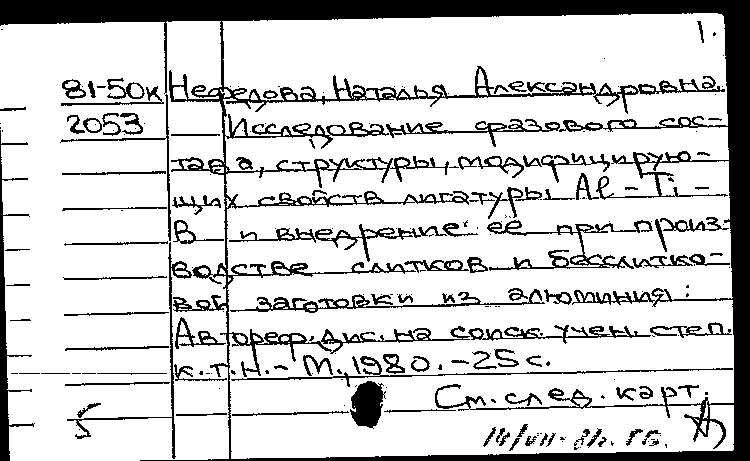 1.
81-50к Нефедова, Наталья Александровна.
2053 Исследование фазового сос-
тава, структуры, модифицирую-
щих свойств лигатуры Al-Ti-
B и внедрение её при произ-
водстве слитков и бесслитко-
вой заготовки из алюминия:
Автореф. дис. на соиск. учен. степ.
к.т.н. - М., 1980. - 25 с.
См. след. карт.
5